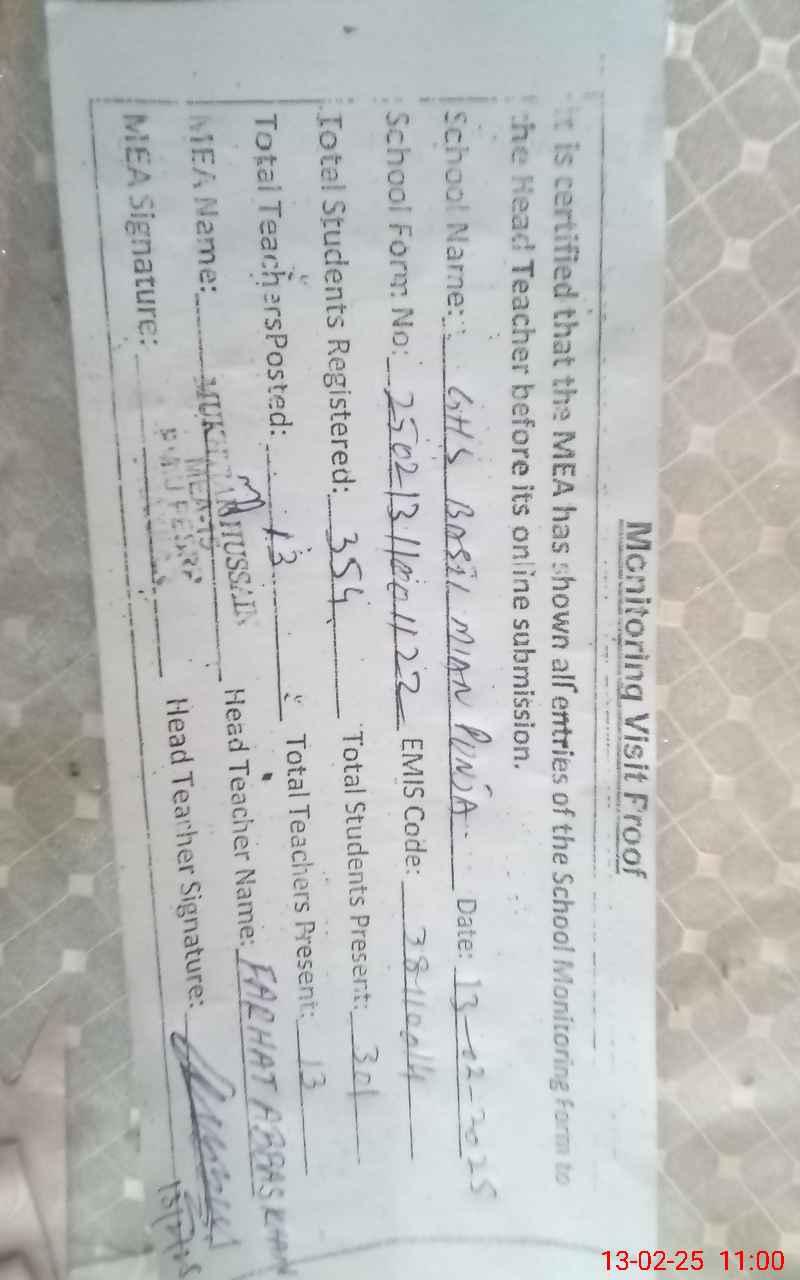 Monitoring Visit Proof
It is certified that the MEA has shown all entries of the School Monitoring Form to
the Head Teacher before its online submission.
School Name: GHS BASTI MIAN PUNJA Date: 13-02-2025
School Form No: 25021311001122 EMIS Code: 38110014
Total Students Registered: 354 Total Students Present: 301
Total Teachers Posted: 13 Total Teachers Present: 13
MEA Name: HUSSAIN Head Teacher Name: FARHAT ABBAS KHAN
MEA-19
MEA Signature: Head Teacher Signature:
13-02-25 11:00